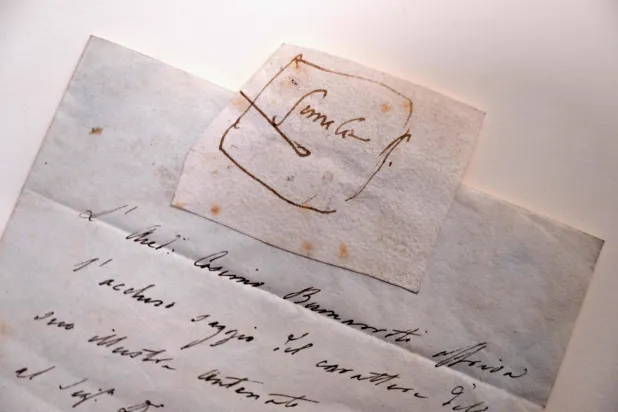 Simile
L' Aud: Cosimo Buonarroti offriva
l' accluso saggio del carattere
suo illustre antenato
al Sigr